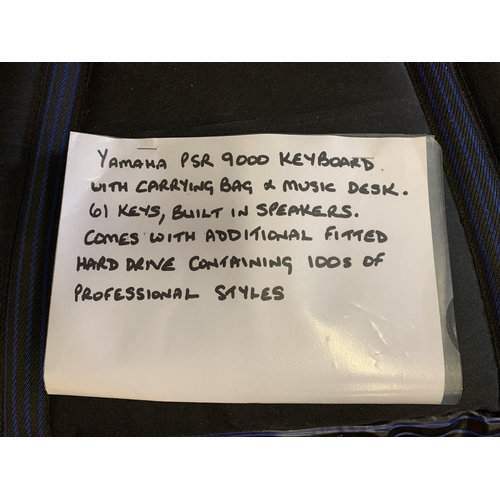 YAMAHA PSR 9000 KEYBOARD.
WITH CARRYING BAG & MUSIC DESK.
61 KEYS, BUILT IN SPEAKERS.
COMES WITH ADDITIONAL FITTED
HARD DRIVE CONTAINING 100S OF
PROFESSIONAL STYLES